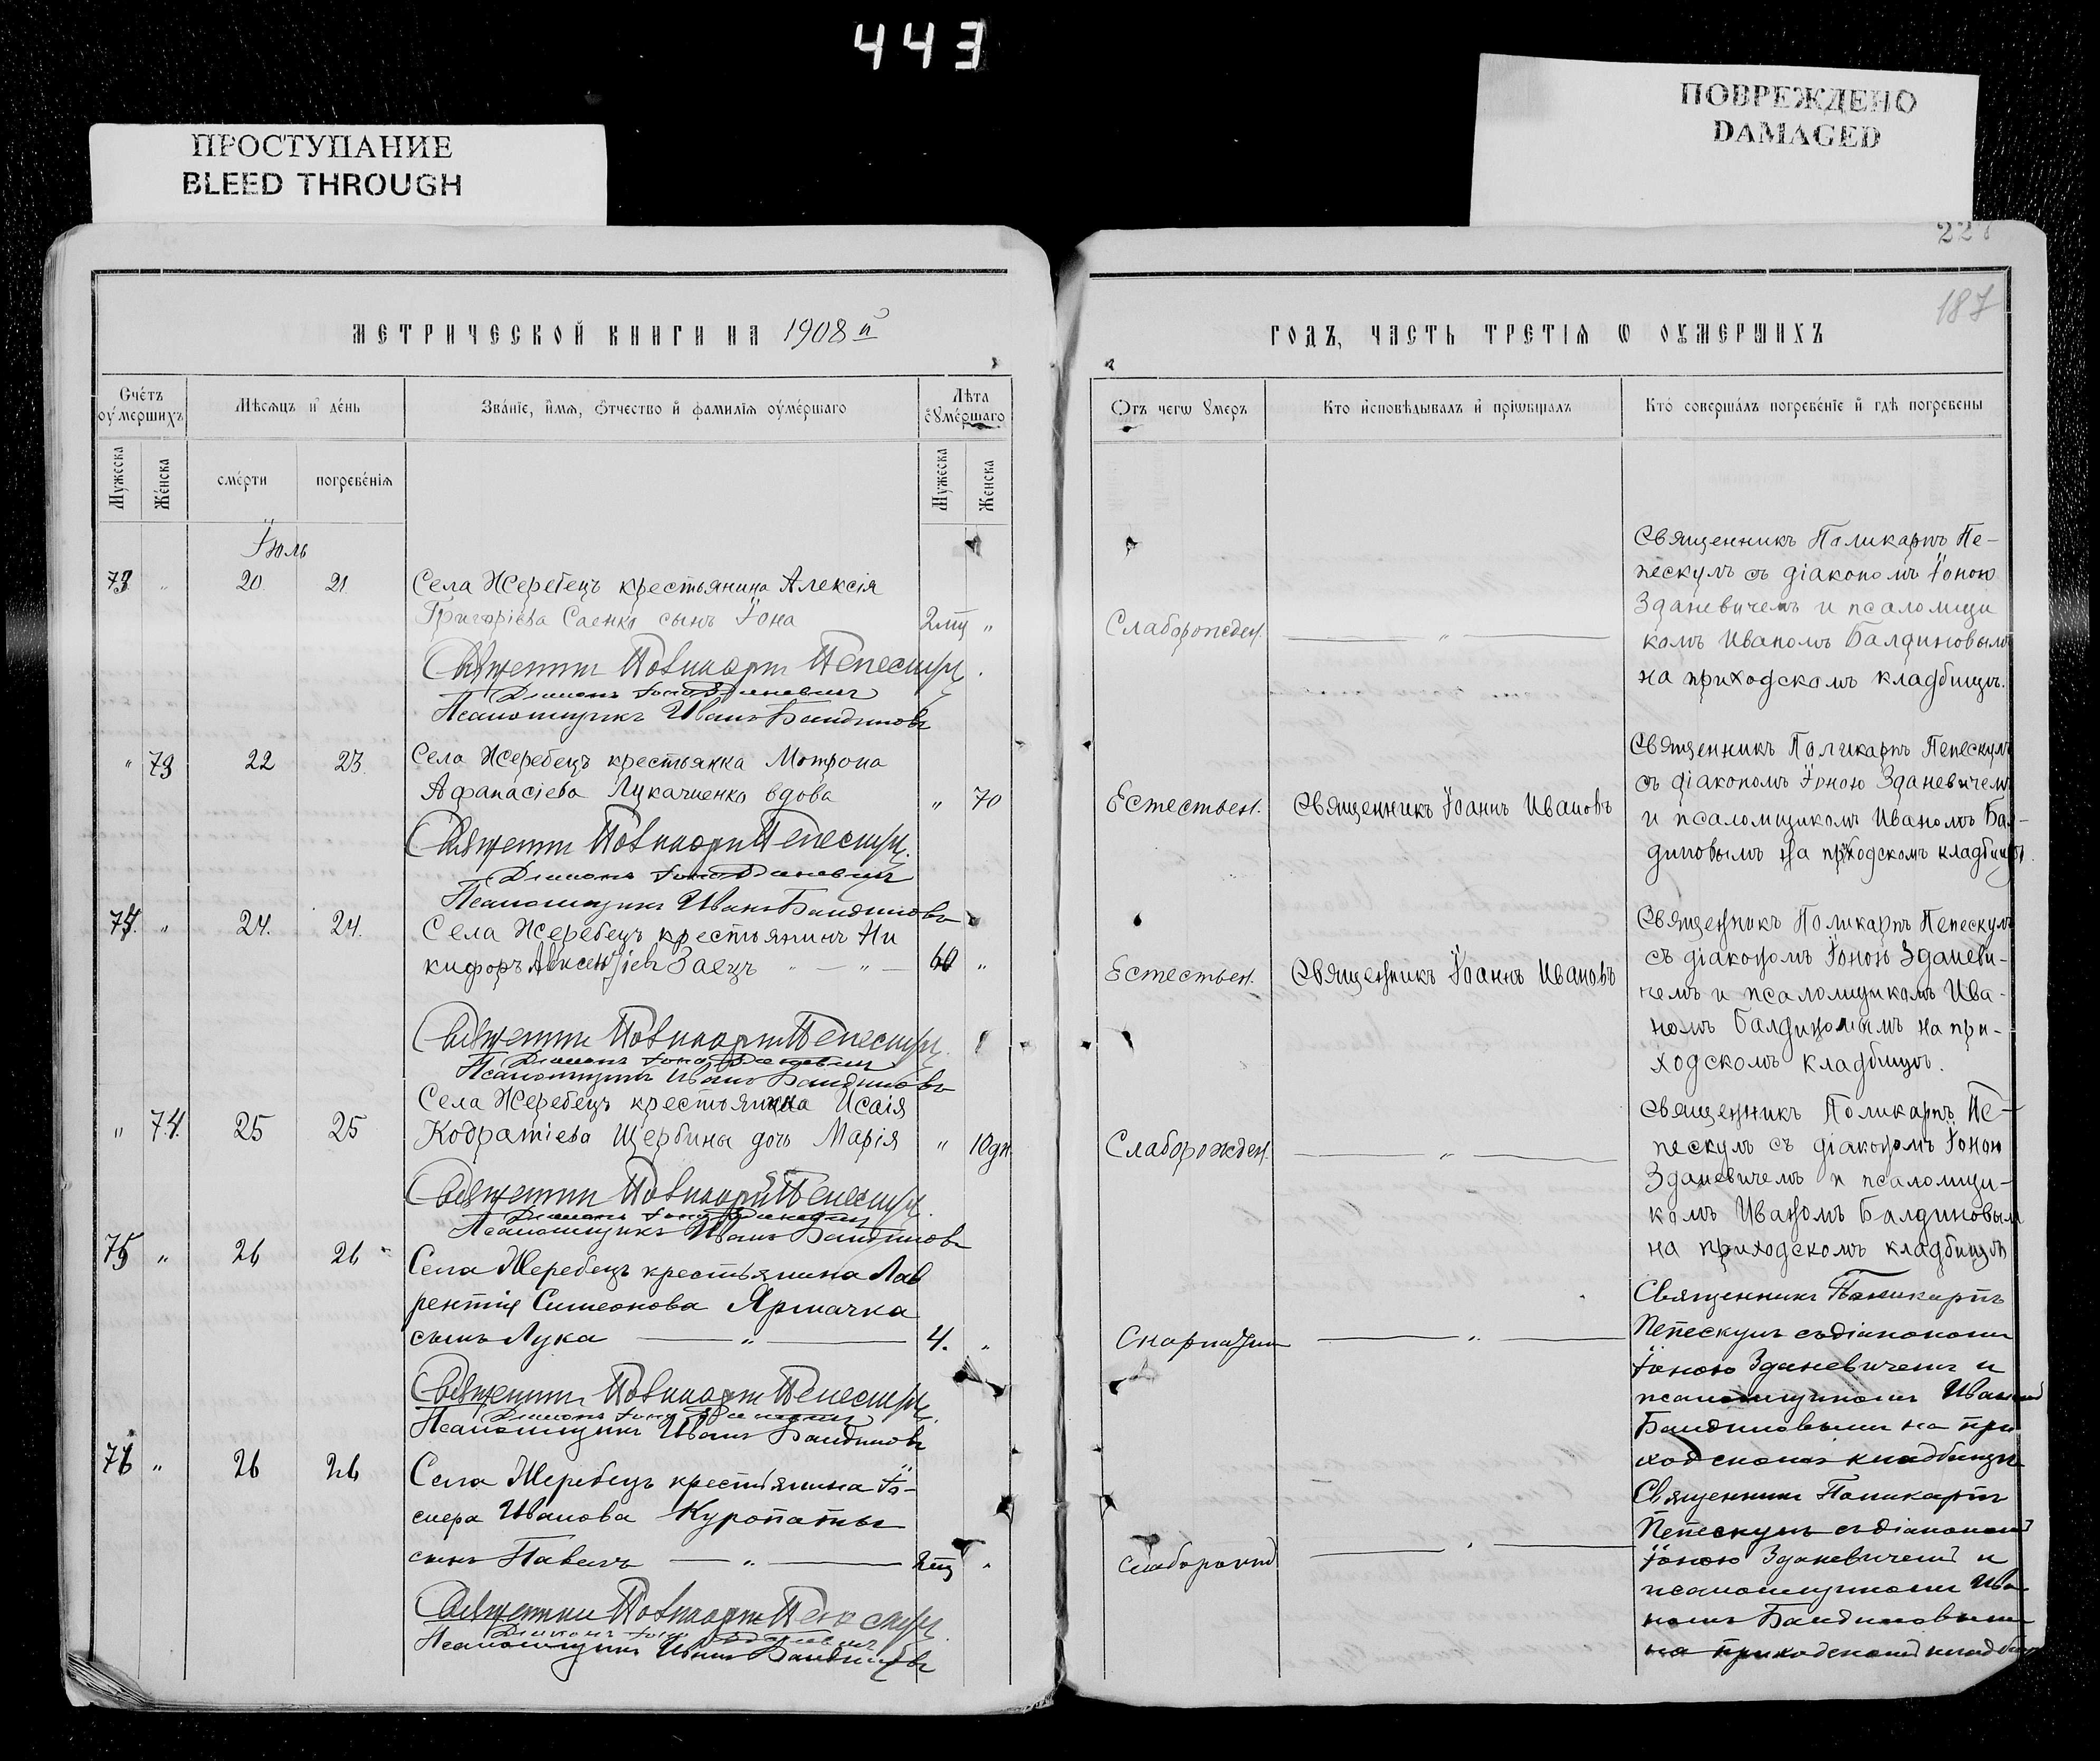 443
ПРОСТУПАНИЕ
BLEED THROUGH
ПОВРЕЖДЕНО
DAMAGED
МЕТРИЧЕСКОЙ КНИГИ НА 1908 й
Счетъ оумершихъ
Мѣсяцъ и день
Званіе, имя, отчество и фамилія оумершаго
Лѣта оумершаго
Мужеска
Женска
смерти
погребенія
Мужеска
Женска
Іюль
73 " 20 21 Села Жеребецъ крестьянина Алексія
Григоріева Саенко сынъ Іона 2 мц "
Священникъ Поликарпъ Пепескулъ
Діаконъ Іона Зданевичъ
Псаломщикъ Иванъ Балдиновъ
" 73 22 23 Села Жеребецъ крестьянка Мотрона
Афанасіева Лукачиенко вдова " 70
Священникъ Поликарпъ Пепескулъ
Діаконъ Іона Зданевичъ
Псаломщикъ Иванъ Балдиновъ
74 " 24 24 Села Жеребецъ крестьянинъ Ни
кифоръ Авксентіевъ Заецъ — " — 60 "
Священникъ Поликарпъ Пепескулъ
Діаконъ Іона Зданевичъ
Псаломщикъ Иванъ Балдиновъ
Села Жеребецъ крестьянина Исаія
" 74 25 25 Кодратіева Щербины дочь Марія " 10 дн.
Священникъ Поликарпъ Пепескулъ
Діаконъ Іона Зданевичъ
Псаломщикъ Иванъ Балдиновъ
75 " 26 26 Села Жеребецъ крестьянина Лав
рентія Симеонова Ярмачка
сынъ Лука — " — 4. "
Священникъ Поликарпъ Пепескулъ
Діаконъ Іона Зданевичъ
Псаломщикъ Иванъ Балдиновъ
76 " 26 26 Села Жеребецъ крестьянина Іо-
сифа Иванова Куропатвы
сынъ Павелъ — " — 2 мц "
Священникъ Поликарпъ Пепескулъ
Діаконъ Іона Зданевичъ
Псаломщикъ Иванъ Балдиновъ
227
187
ГОДЪ, ЧАСТЬ ТРЕТІЯ Ѡ ОУМЕРШИХЪ
Отъ чегѡ умеръ
Кто исповѣдывалъ и пріѡбщалъ
Кто совершалъ погребеніе и гдѣ погребены
Священникъ Поликарпъ Пе-
пескулъ съ діакономъ Іоною
Зданевичемъ и псаломщи
Слаборожден. — " — комъ Иваномъ Балдиновымъ
на приходскомъ кладбищѣ.
Священникъ Поликарпъ Пепескулъ
съ діакономъ Іоною Зданевичемъ
Естествен. Священникъ Іоаннъ Ивановъ и псаломщикомъ Иваномъ Бал-
диновымъ на приходскомъ кладбищѣ.
Священникъ Поликарпъ Пепескулъ
Естествен. Священникъ Іоаннъ Ивановъ съ діакономъ Іоною Зданеви-
чемъ и псаломщикомъ Ива-
номъ Балдиновымъ на при-
ходскомъ кладбищѣ.
Священникъ Поликарпъ Пе-
Слаборожден. — " — пескулъ съ діакономъ Іоною
Зданевичемъ и псаломщи-
комъ Иваномъ Балдиновым
на приходскомъ кладбищѣ
Священникъ Поликарпъ
Скарлатин — " — Пепескулъ съ діакономъ
Іоною Зданевичемъ и
псаломщикомъ Иваном
Балдиновымъ на при
ходскомъ кладбищѣ
Священникъ Поликарпъ
Пепескулъ съ діакономъ
Слаборожд — " — Іоною Зданевичемъ и
псаломщикомъ Ива
номъ Балдиновымъ
на приходскомъ кладбищ